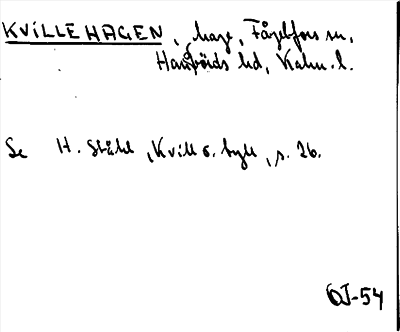 KVILLEHAGEN, hage, Fågelfors sn,
Handbörds hd, Kalm. l.
Se H. Ståhl, Kvill o. byll, s. 26.
OJ-54